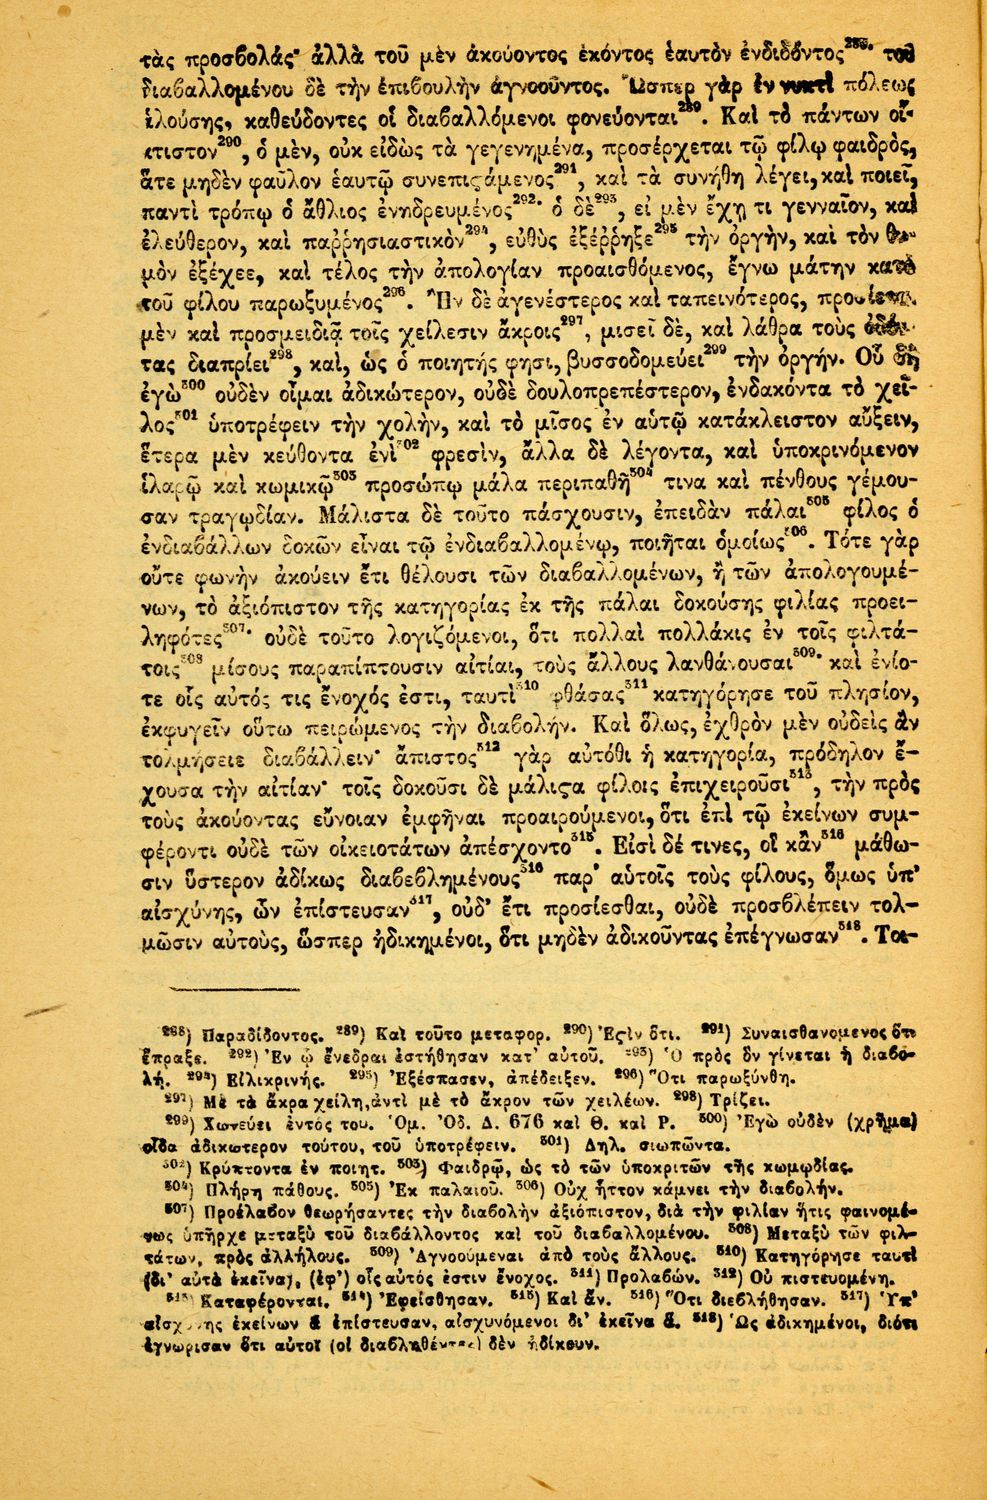 τὰς προσβολάς· ἀλλὰ τοῦ μὲν ἀκούοντος ἑκόντος ἑαυτὸν ἐνδιδόντος²⁸⁸· τοῦ
διαβαλλομένου δὲ τὴν ἐπιβουλὴν ἀγνοοῦντος. Ὥσπερ γὰρ ἐν νυκτὶ πόλεως
ἁλούσης, καθεύδοντες οἱ διαβαλλόμενοι φονεύονται²⁸⁹. Καὶ τὸ πάντων οἴ-
κτιστον²⁹⁰, ὁ μὲν, οὐκ εἰδὼς τὰ γεγενημένα, προσέρχεται τῷ φίλῳ φαιδρὸς,
ἅτε μηδὲν φαῦλον ἑαυτῷ συνεπιϛάμενος²⁹¹, καὶ τὰ συνήθη λέγει, καὶ ποιεῖ,
παντὶ τρόπῳ ὁ ἄθλιος ἐνηδρευμένος²⁹²· ὁ δὲ²⁹³, εἰ μὲν ἔχῃ τι γενναῖον, καὶ
ἐλεύθερον, καὶ παῤῥησιαστικὸν²⁹⁴, εὐθὺς ἐξέῤῥηξε²⁹⁵ τὴν ὀργὴν, καὶ τὸν θυ-
μὸν ἐξέχεε, καὶ τέλος τὴν ἀπολογίαν προαισθόμενος, ἔγνω μάτην κατὰ
τοῦ φίλου παρωξυμένος²⁹⁶. Ἢν δὲ ἀγενέστερος καὶ ταπεινότερος, προσίεται
μὲν καὶ προσμειδιᾷ τοῖς χείλεσιν ἄκροις²⁹⁷, μισεῖ δὲ, καὶ λάθρα τοὺς ὀδόν-
τας διαπρίει²⁹⁸, καὶ, ὡς ὁ ποιητής φησι, βυσσοδομεύει²⁹⁹ τὴν ὀργήν. Οὗ δὴ
ἐγὼ³⁰⁰ οὐδὲν οἶμαι ἀδικώτερον, οὐδὲ δουλοπρεπέστερον, ἐνδακόντα τὸ χεῖ-
λος³⁰¹ ὑποτρέφειν τὴν χολὴν, καὶ τὸ μῖσος ἐν αὑτῷ κατάκλειστον αὔξειν,
ἕτερα μὲν κεύθοντα ἐνὶ³⁰² φρεσὶν, ἄλλα δὲ λέγοντα, καὶ ὑποκρινόμενον
ἱλαρῷ καὶ κωμικῷ³⁰³ προσώπῳ μάλα περιπαθῆ³⁰⁴ τινα καὶ πένθους γέμου-
σαν τραγῳδίαν. Μάλιστα δὲ τοῦτο πάσχουσιν, ἐπειδὰν πάλαι³⁰⁵ φίλος ὁ
ἐνδιαβάλλων δοκῶν εἶναι τῷ ἐνδιαβαλλομένῳ, ποιῆται ὁμοίως³⁰⁶. Τότε γὰρ
οὔτε φωνὴν ἀκούειν ἔτι θέλουσι τῶν διαβαλλομένων, ἢ τῶν ἀπολογουμέ-
νων, τὸ ἀξιόπιστον τῆς κατηγορίας ἐκ τῆς πάλαι δοκούσης φιλίας προει-
ληφότες³⁰⁷· οὐδὲ τοῦτο λογιζόμενοι, ὅτι πολλαὶ πολλάκις ἐν τοῖς φιλτά-
τοις³⁰⁸ μίσους παραπίπτουσιν αἰτίαι, τοὺς ἄλλους λανθάνουσαι³⁰⁹· καὶ ἐνίο-
τε οἷς αὐτός τις ἔνοχός ἐστι, ταυτὶ³¹⁰ φθάσας³¹¹ κατηγόρησε τοῦ πλησίον,
ἐκφυγεῖν οὕτω πειρώμενος τὴν διαβολήν. Καὶ ὅλως, ἐχθρὸν μὲν οὐδεὶς ἂν
τολμήσειε διαβάλλειν· ἄπιστος³¹² γὰρ αὐτόθι ἡ κατηγορία, πρόδηλον ἔ-
χουσα τὴν αἰτίαν· τοῖς δοκοῦσι δὲ μάλιϛα φίλοις ἐπιχειροῦσι³¹³, τὴν πρὸς
τοὺς ἀκούοντας εὔνοιαν ἐμφῆναι προαιρούμενοι, ὅτι ἐπὶ τῷ ἐκείνων συμ-
φέροντι οὐδὲ τῶν οἰκειοτάτων ἀπέσχοντο³¹⁵. Εἰσὶ δέ τινες, οἳ κἂν³¹⁶ μάθω-
σιν ὕστερον ἀδίκως διαβεβλημένους³¹⁶ παρ' αὐτοῖς τοὺς φίλους, ὅμως ὑπ'
αἰσχύνης, ὧν ἐπίστευσαν³¹⁷, οὐδ' ἔτι προσίεσθαι, οὐδὲ προσβλέπειν τολ-
μῶσιν αὐτοὺς, ὥσπερ ἠδικημένοι, ὅτι μηδὲν ἀδικοῦντας ἐπέγνωσαν³¹⁸. Τοι-
²⁸⁸) Παραδίδοντος. ²⁸⁹) Καὶ τοῦτο μεταφορ. ²⁹⁰) Ἐϛὶν ὅτι. ²⁹¹) Συναισθανομενος ὅτι
ἔπραξε. ²⁹²) Ἐν ᾧ ἔνεδραι ἐστήθησαν κατ' αὐτοῦ. ²⁹³) Ὁ πρὸς ὃν γίνεται ἡ διαβο-
λή. ²⁹⁴) Εἰλικρινής. ²⁹⁵) Ἐξέσπασεν, ἀπέδειξεν. ²⁹⁶) Ὅτι παρωξύνθη.
²⁹⁷) Μὲ τὰ ἄκρα χείλη, ἀντὶ μὲ τὸ ἄκρον τῶν χειλέων. ²⁹⁸) Τρίζει.
²⁹⁹) Χωνεύει ἐντός του. Ὁμ. Ὀδ. Δ. 676 καὶ Θ. καὶ Ρ. ³⁰⁰) Ἐγὼ οὐδὲν (χρῆμα)
οἶδα ἀδικωτερον τούτου, τοῦ ὑποτρέφειν. ³⁰¹) Δηλ. σιωπῶντα.
³⁰²) Κρύπτοντα ἐν ποιητ. ³⁰³) Φαιδρῷ, ὡς τὸ τῶν ὑποκριτῶν τῆς κωμῳδίας.
³⁰⁴) Πλήρη πάθους. ³⁰⁵) Ἐκ παλαιοῦ. ³⁰⁶) Οὐχ ἧττον κάμνει τὴν διαβολήν.
³⁰⁷) Προέλαβον θεωρήσαντες τὴν διαβολὴν ἀξιόπιστον, διὰ τὴν φιλίαν ἥτις φαινομέ-
νως ὑπῆρχε μεταξὺ τοῦ διαβάλλοντος καὶ τοῦ διαβαλλομένου. ³⁰⁸) Μεταξὺ τῶν φιλ-
τάτων, πρὸς ἀλλήλους. ³⁰⁹) Ἀγνοούμεναι ἀπὸ τοὺς ἄλλους. ³¹⁰) Κατηγόρησε ταυτὶ
(δι' αὐτὰ ἐκεῖνα), (ἐφ') οἷς αὐτός ἐστιν ἔνοχος. ³¹¹) Προλαβών. ³¹²) Οὐ πιστευομένη.
³¹³) Καταφέρονται. ³¹⁴) Ἐφείσθησαν. ³¹⁵) Καὶ ἄν. ³¹⁶) Ὅτι διεβλήθησαν. ³¹⁷) Ὑπ'
αἰσχύνης ἐκείνων ἃ ἐπίστευσαν, αἰσχυνόμενοι δι' ἐκεῖνα ἃ. ³¹⁸) Ὡς ἀδικημένοι, διότι
ἐγνωρισαν ὅτι αὐτοὶ (οἱ διαβληθέντες) δὲν ἠδίκουν.